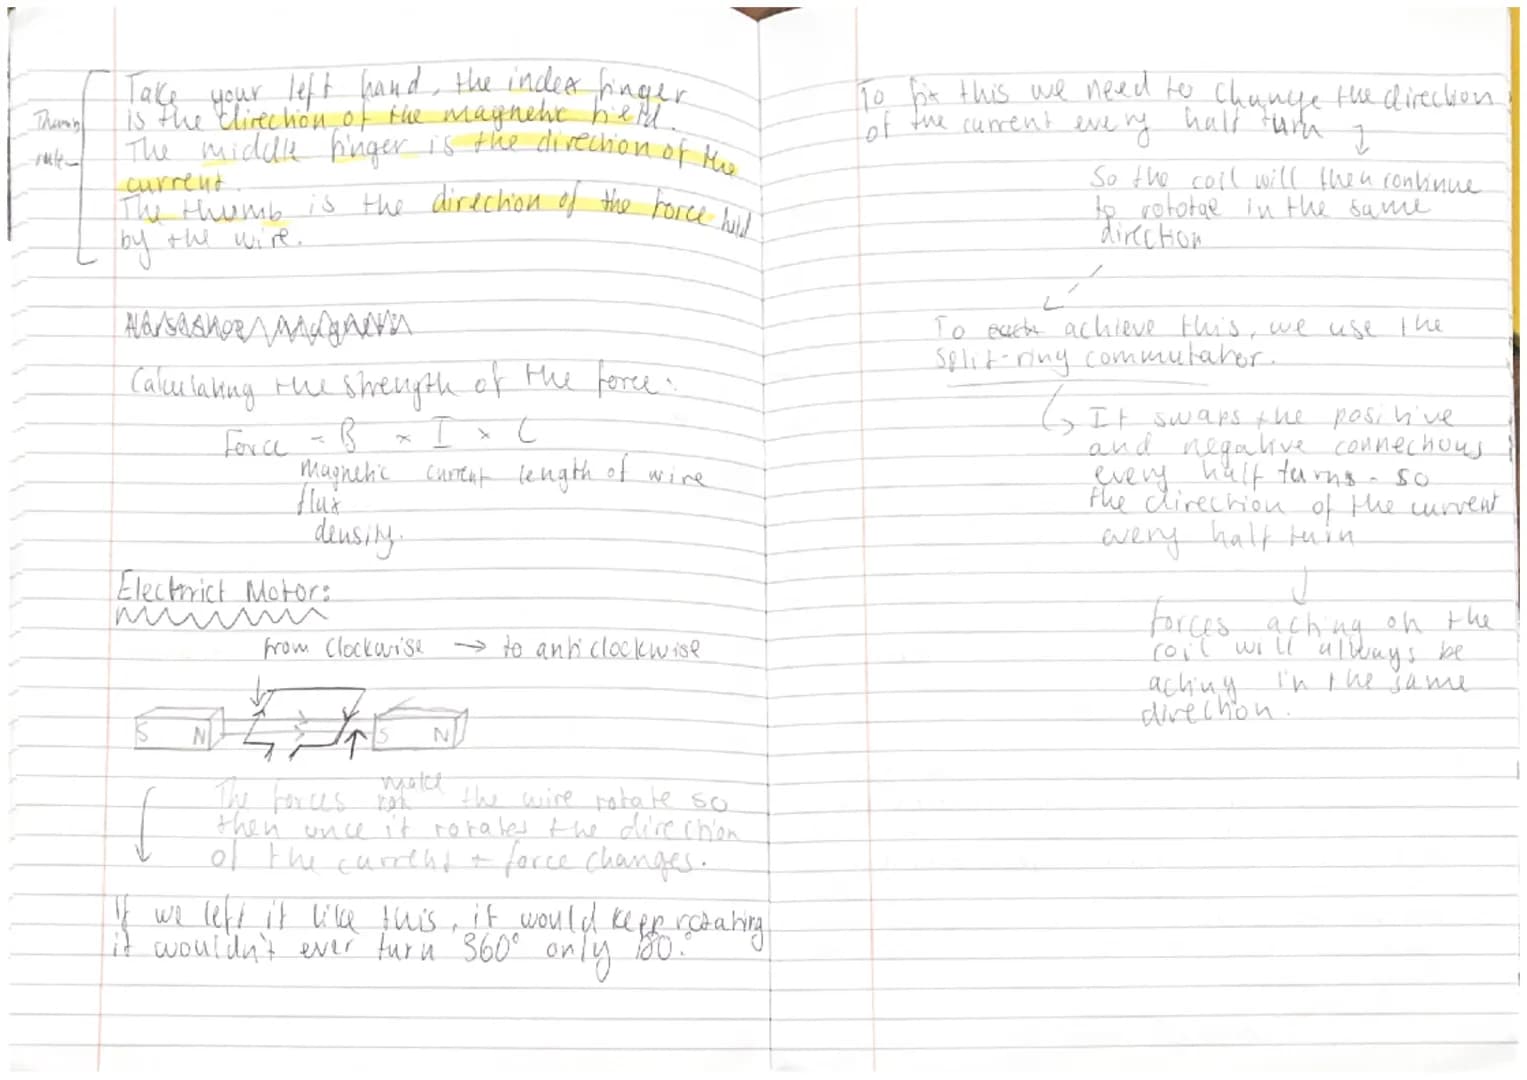 Thumb
rule
Take your left hand, the index finger
is the direction of the magnetic field.
The middle finger is the direction of the
current.
The thumb is the direction of the force
by the wire.
Calculating the strength of the force:
Force = B × I × L
Magnetic current length of wire
flux
density.
Electrict Motors
from Clockwise → to anticlockwise
S N S N
make
The forces the wire rotate so
then once it rotates the direction
of the current + force changes.
If we left it like this, it would keep rotating
it wouldn't ever turn 360° only 180°
To fix this we need to change the direction
of the current every half turn
So the coil will then continue
to rototae in the same
direction
To achieve this, we use the
split-ring commutator.
It swaps the positive
and negative connections
every half turns - so
the direction of the current
every half turn
forces acting on the
coil will always be
acting in the same
direction.